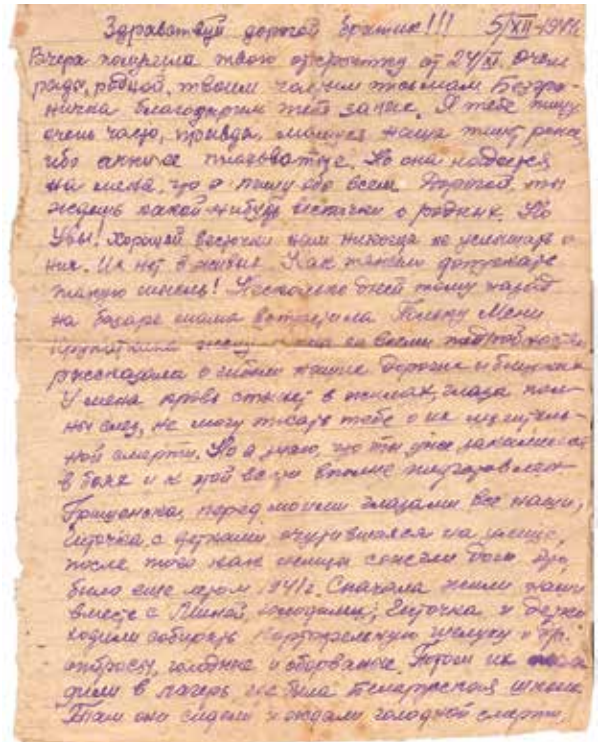 Здравствуй дорогой братик!!! 5/XII-1944
Вчера получила твою открытку от 24/XI. Очень
рады, родной, твоим частым письмам. Безгра-
нично благодарим тебя за них. Я тебе пишу
очень часто, правда,
Но она надеется
на меня, что я пишу обо всем. Дорогой, ты
ждешь какой-нибудь весточки о родных. Но
Увы! Хорошей весточки нам никогда не услышать о
них. Их нет в живых. Как тяжело допускать
такую мысль! Несколько дней тому назад
на базаре мама встретила Полину
жену и она со всеми подробностями
рассказала о гибели наших дорогих и близких
У меня кровь стынет в жилах, глаза пол-
ны слез, не могу писать тебе о их мучитель-
ной смерти. Но я знаю, что ты уже закалился
в боях и к этой вести вполне подготовлен
Гришенька, перед моими глазами все наши,
с детками очутившаяся на улице,
после того как немцы сожгли дом. Это
было еще летом 1941г. Сначала жили наши
вместе с и дети
ходили собирать картофельную шелуху и др.
отбросы, голодные и оборванные. Потом их
в лагерь где была Белорусская школа
Там они сидели и ждали голодной смерти,